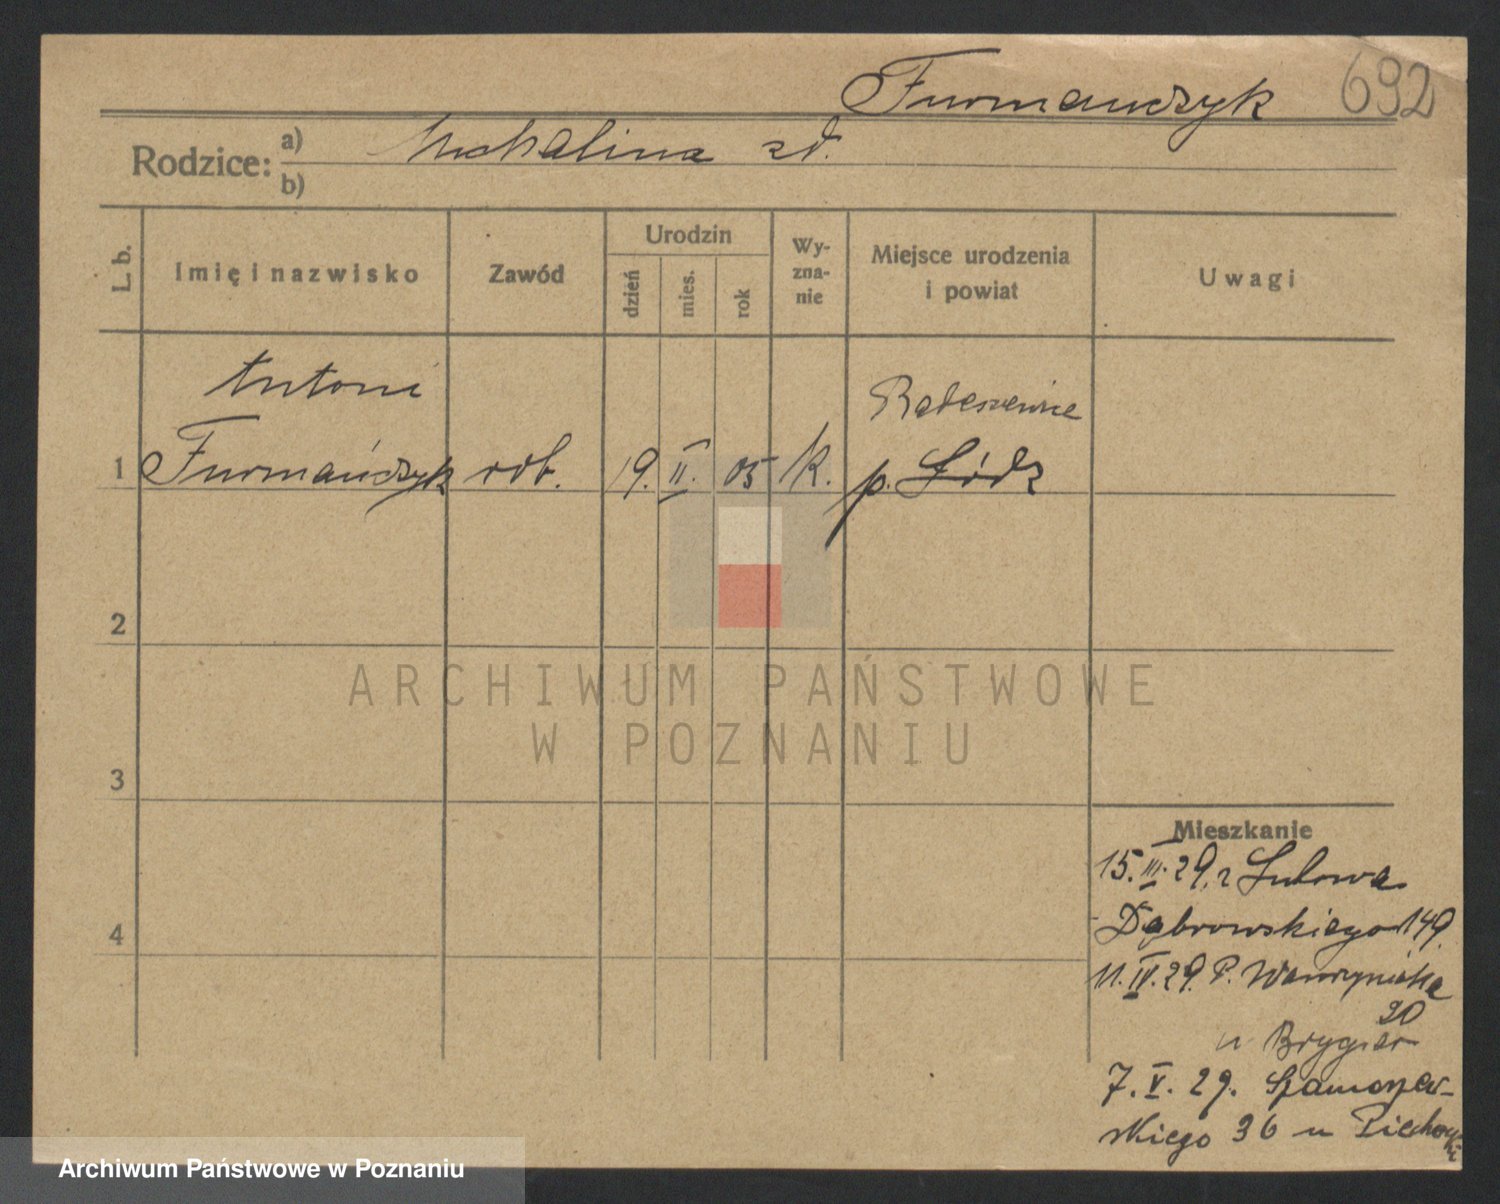 Furmańczyk 692
Rodzice: a) Michalina zd.
b)
L. b. Imię i nazwisko Zawód Urodzin dzień mies. rok Wy-zna-nie Miejsce urodzenia i powiat Uwagi
Antoni
1 Furmańczyk rob. 19. II. 05 k. p. Łódź
2
3
4
Mieszkanie
15. III. 29. z
Dąbrowskiego 149.
11. IV. 29. P. Wawrzyniaka
20
u Brygier
7. V. 29. Szamorzew-
skiego 36 u Piechocki
ARCHIWUM PAŃSTWOWE
W POZNANIU
Archiwum Państwowe w Poznaniu